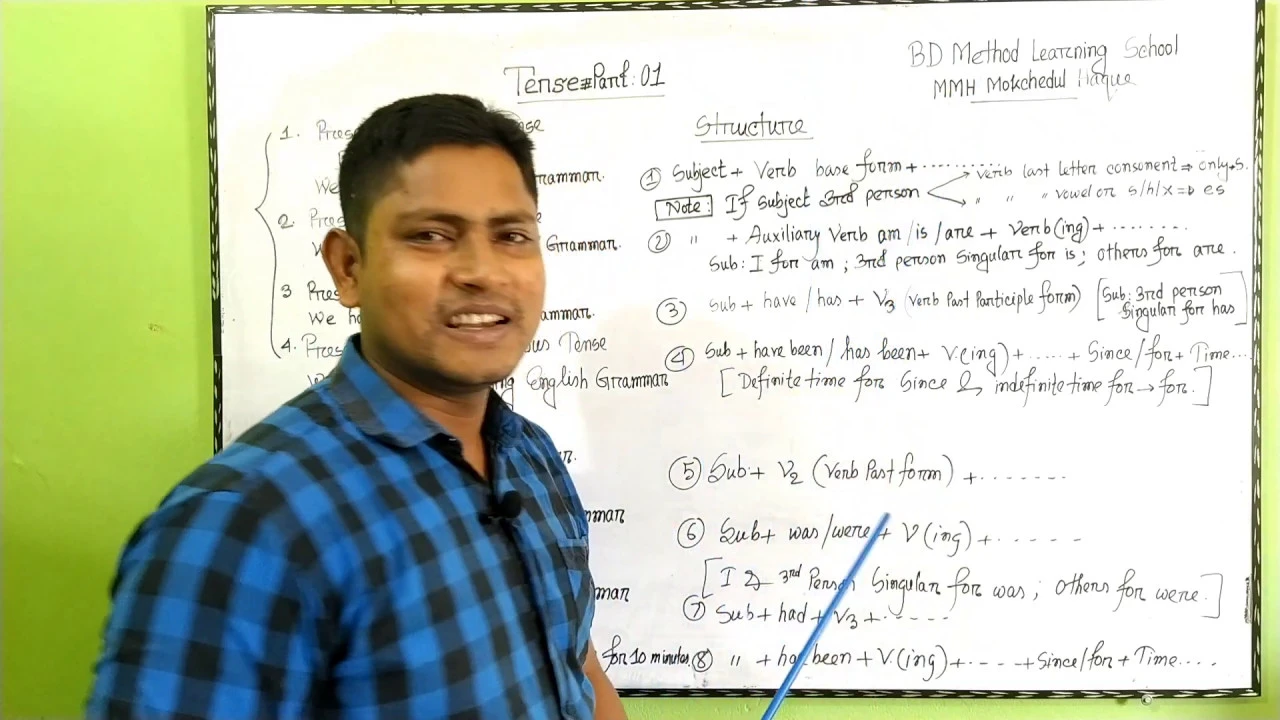 BD Method Learning School
MMH Mokchedul Haque
Tense Part: 01
Structure
1.
We
Grammar.
2.
Grammar.
3
We
4.
Tense
English Grammar
① Subject + Verb base form + .......... verb last letter consonent ⇒ only s.
Note: If subject 3rd person " " " vowel or s/h/x ⇒ es
② " + Auxiliary Verb am/is/are + Verb(ing) + ........
Sub: I for am; 3rd person Singular for is; others for are.
③ Sub + have/has + V3 (Verb Past Participle form) [Sub: 3rd person Singular for has]
④ Sub + have been/ has been + V.(ing) + ..... + Since/for + Time...
[Definite time for Since & indefinite time for → for.]
⑤ Sub + V2 (Verb Past form) + .......
⑥ Sub + was/were + V(ing) + .....
[I & 3rd Person Singular for was; Others for were.]
⑦ Sub + had + V3 + .....
for 10 minutes. ⑧ " + been + V.(ing) + .... + Since/for + Time....